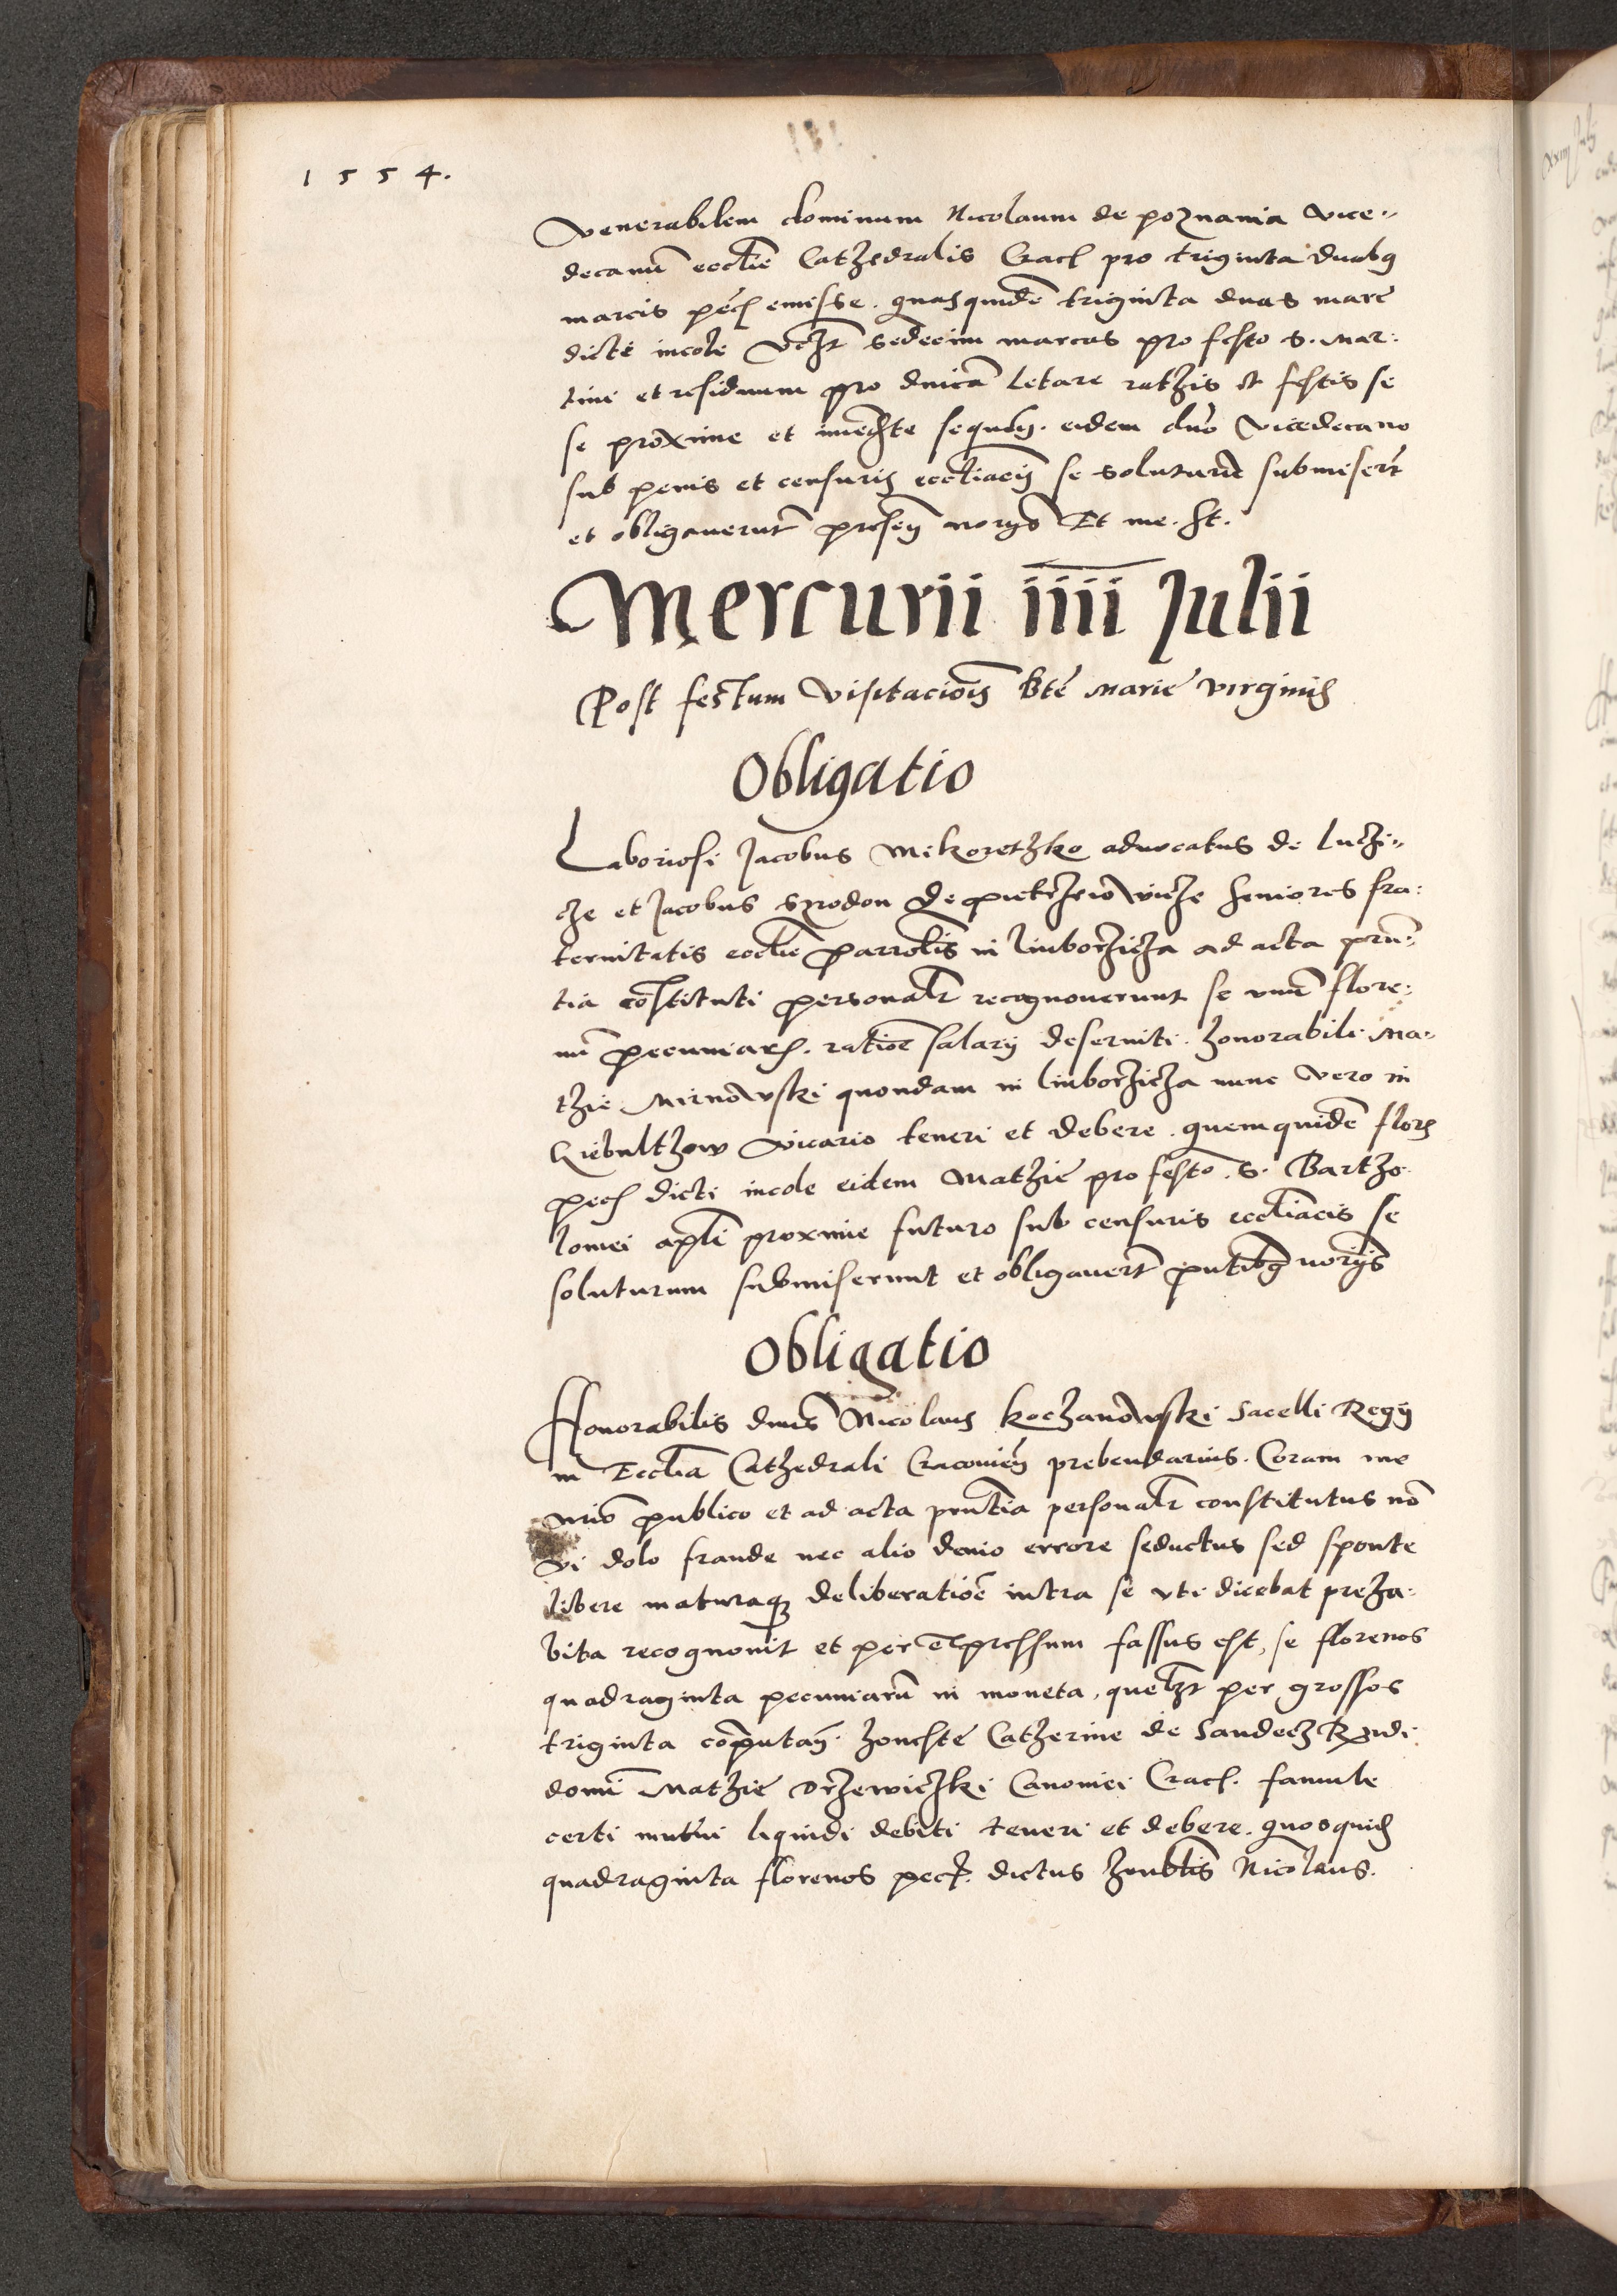 1554.
Venerabilem dominum Nicolaum de poznania vice-
decanũ eccłie Cathedralis Crac pro triginta duabq
marcis pec emisse. quasquidẽ triginta duas marc
dicte incole vcȝt sedecim marcas pro festo s. Mar:
tini et residuum pro dnica letare rathis et festis se
se proxime et imẽdte sequẽn. eidem dno vicedecano
sub penis et censuris eccłiacis se soluturũ submisert
et obligauerũt presẽn norijs Et me. St.
Mercurii iiii Julii
Post festum visitaciõis Bte Marie virginis
Obligatio
Laboriosi Jacobus Mikoretzko aduocatus de luczi-
cze et Jacobus szrodon de pietrzeiowicze seniores fra:
ternitatis eccłie parrołis in luborzicza ad acta prñ:
tia cõstituti personałr recognouerunt se vnũ flore:
nũ pecuniarũ. ratiõe salarij deseruiti. honorabili Ma-
thie Mirnowski quondam in luborzicza nunc vero in
Kiebultzow vicario teneri et debere. quemquidẽ flor
pec dicti incole eidem Mathie pro festo s. Bartho
lomei apłi proxime futuro sub censuris eccłiacis se
soluturum submiserunt et obligauerũt pñtibq norijs
Obligatio
Honorabilis dnus Nicolaus koczanowski Sacelli Regij
in Eccłia Cathedrali Cracouieñ prebendarius. Coram me
nrio publico et ad acta prñtia personałr constitutus nõ
vi dolo fraude nec alio deuio errore seductus sed sponte
libere maturaq deliberatiõe intra se vti dicebat preha:
bita recognouit et per expressum fassus est, se florenos
quadraginta pecuniarũ in moneta, quełȝt per grossos
triginta cõputañ. honeste Catherine de Sandecz Rndi
domi Mathie Drzewiczki Canonici Crac. famule
certi mutui liquidi debiti teneri et debere. quosquid
quadraginta florenos pec. dictus honbłis Nicolaus.